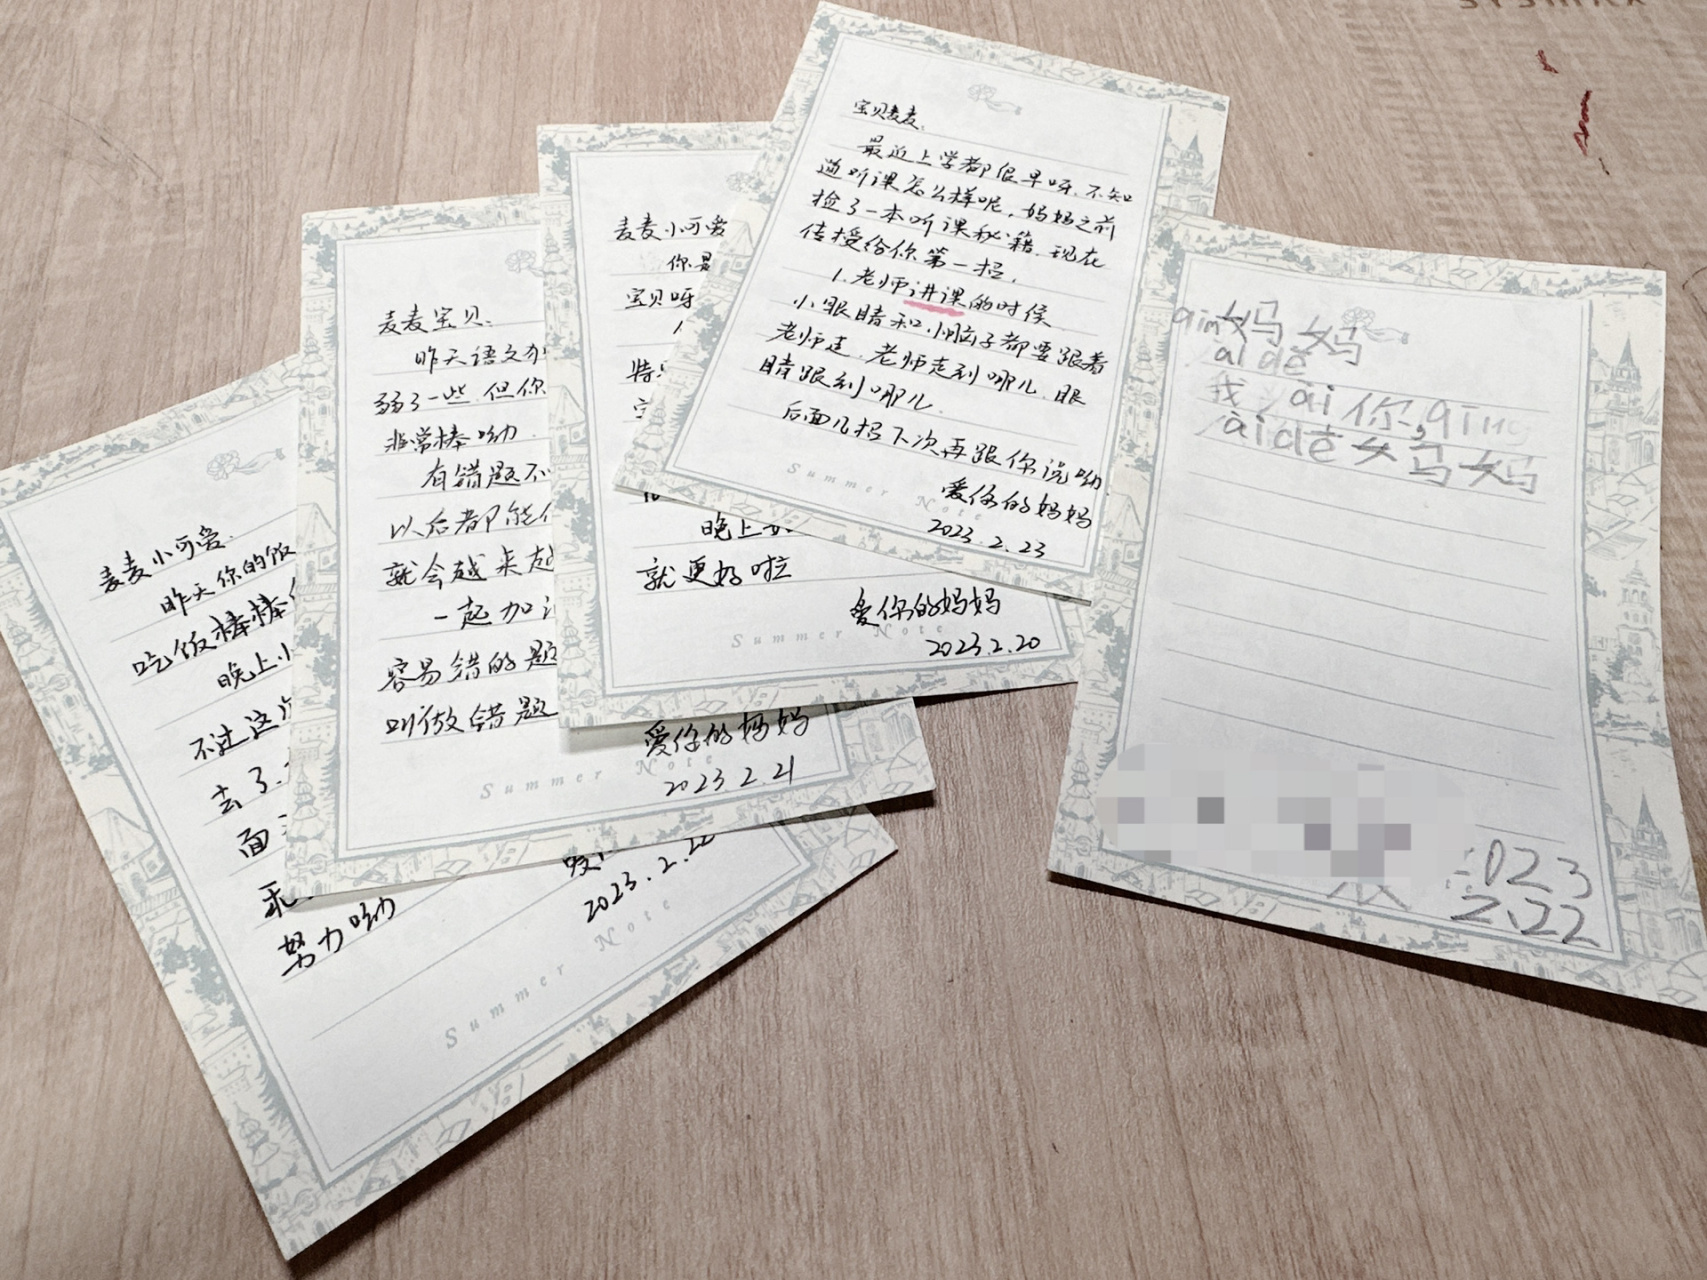 麦麦小可爱.
昨天你的饭
吃饭棒棒
晚上小
不过这次
去了.
面
乖
努力呦
2023.2.22
Summer Note
麦麦宝贝:
昨天语文
弱了一些.但你
非常棒呦.
有错题不
以后都能
就会越来越
一起加
容易错的题
叫做错题
爱你的妈妈
2023.2.21
Summer Note
麦麦小可爱
你是
宝贝呀
特
晚上
就更好啦
爱你的妈妈
2023.2.20
Summer Note
宝贝麦麦.
最近上学都很早呀.不知
道听课怎么样呢.妈妈之前
捡了一本听课秘籍.现在
传授给你第一招.
1.老师讲课的时候
小眼睛和小脑子都要跟着
老师走.老师走到哪儿.眼
睛跟到哪儿.
后面几招下次再跟你说呦.
爱你的妈妈
2023.2.23
Summer Note
妈妈
ai de
我 ai 你,
ai de 妈妈
023
2.22